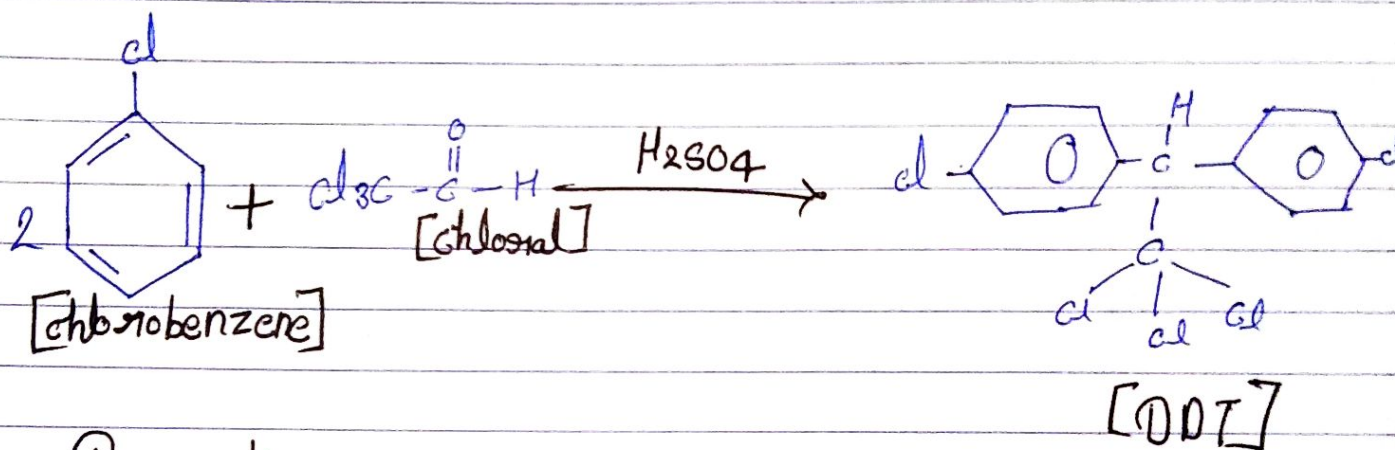 Cl
2 + Cl3C-C-H H2SO4 Cl C H Cl
O
[chloral]
[chlorobenzene]
C
Cl Cl Cl
[DDT]